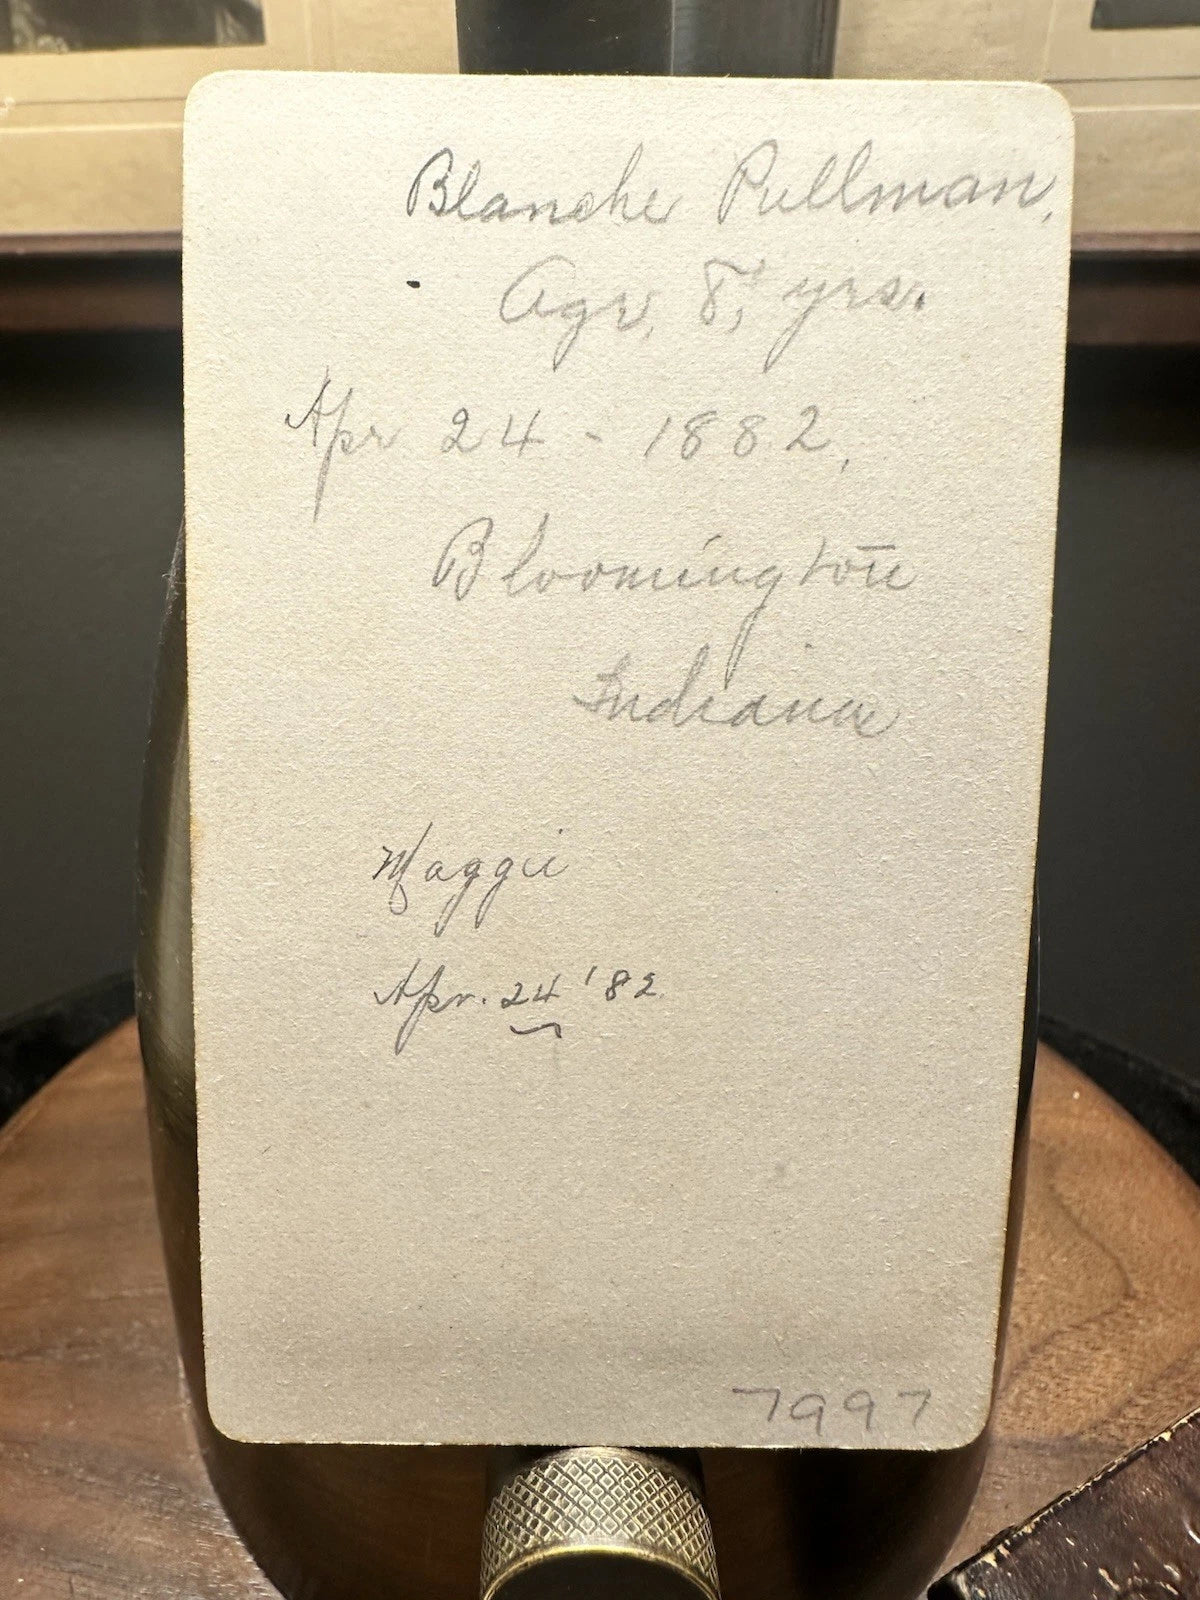 Blanche Pullman,
Age, 8, yrs.
Apr 24 - 1882,
Bloomington
Indiana
Maggie
Apr. 24 '82
7997